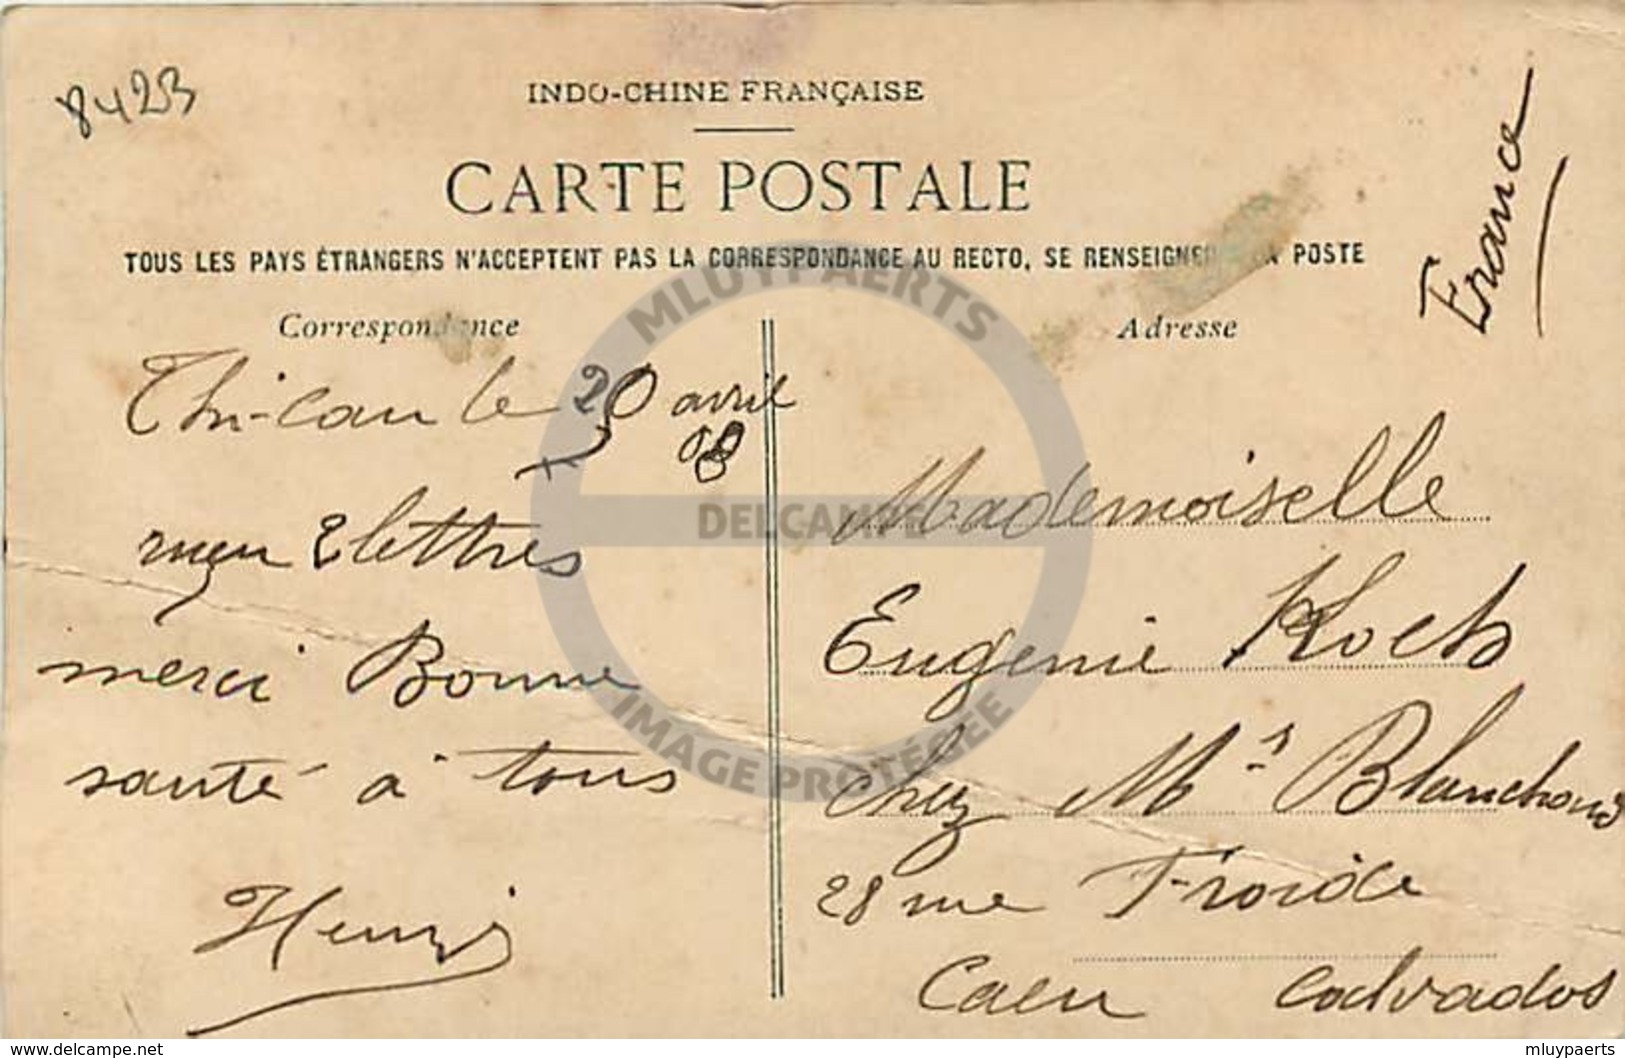 8423
INDO-CHINE FRANÇAISE
CARTE POSTALE
TOUS LES PAYS ÉTRANGERS N'ACCEPTENT PAS LA CORRESPONDANCE AU RECTO, SE RENSEIGNER LA POSTE
France
Correspondance
Thi-Cau le 20 avril
08
reçu 2 lettres
merci Bonne
santé à tous
Henri
Adresse
Mademoiselle
Eugenie Koch
chez Mr Blanchard
28 rue Froide
Caen Calvados
MLUYPAERTS
DELCAMPE
IMAGE PROTÉGÉE
www.delcampe.net
mluypaerts